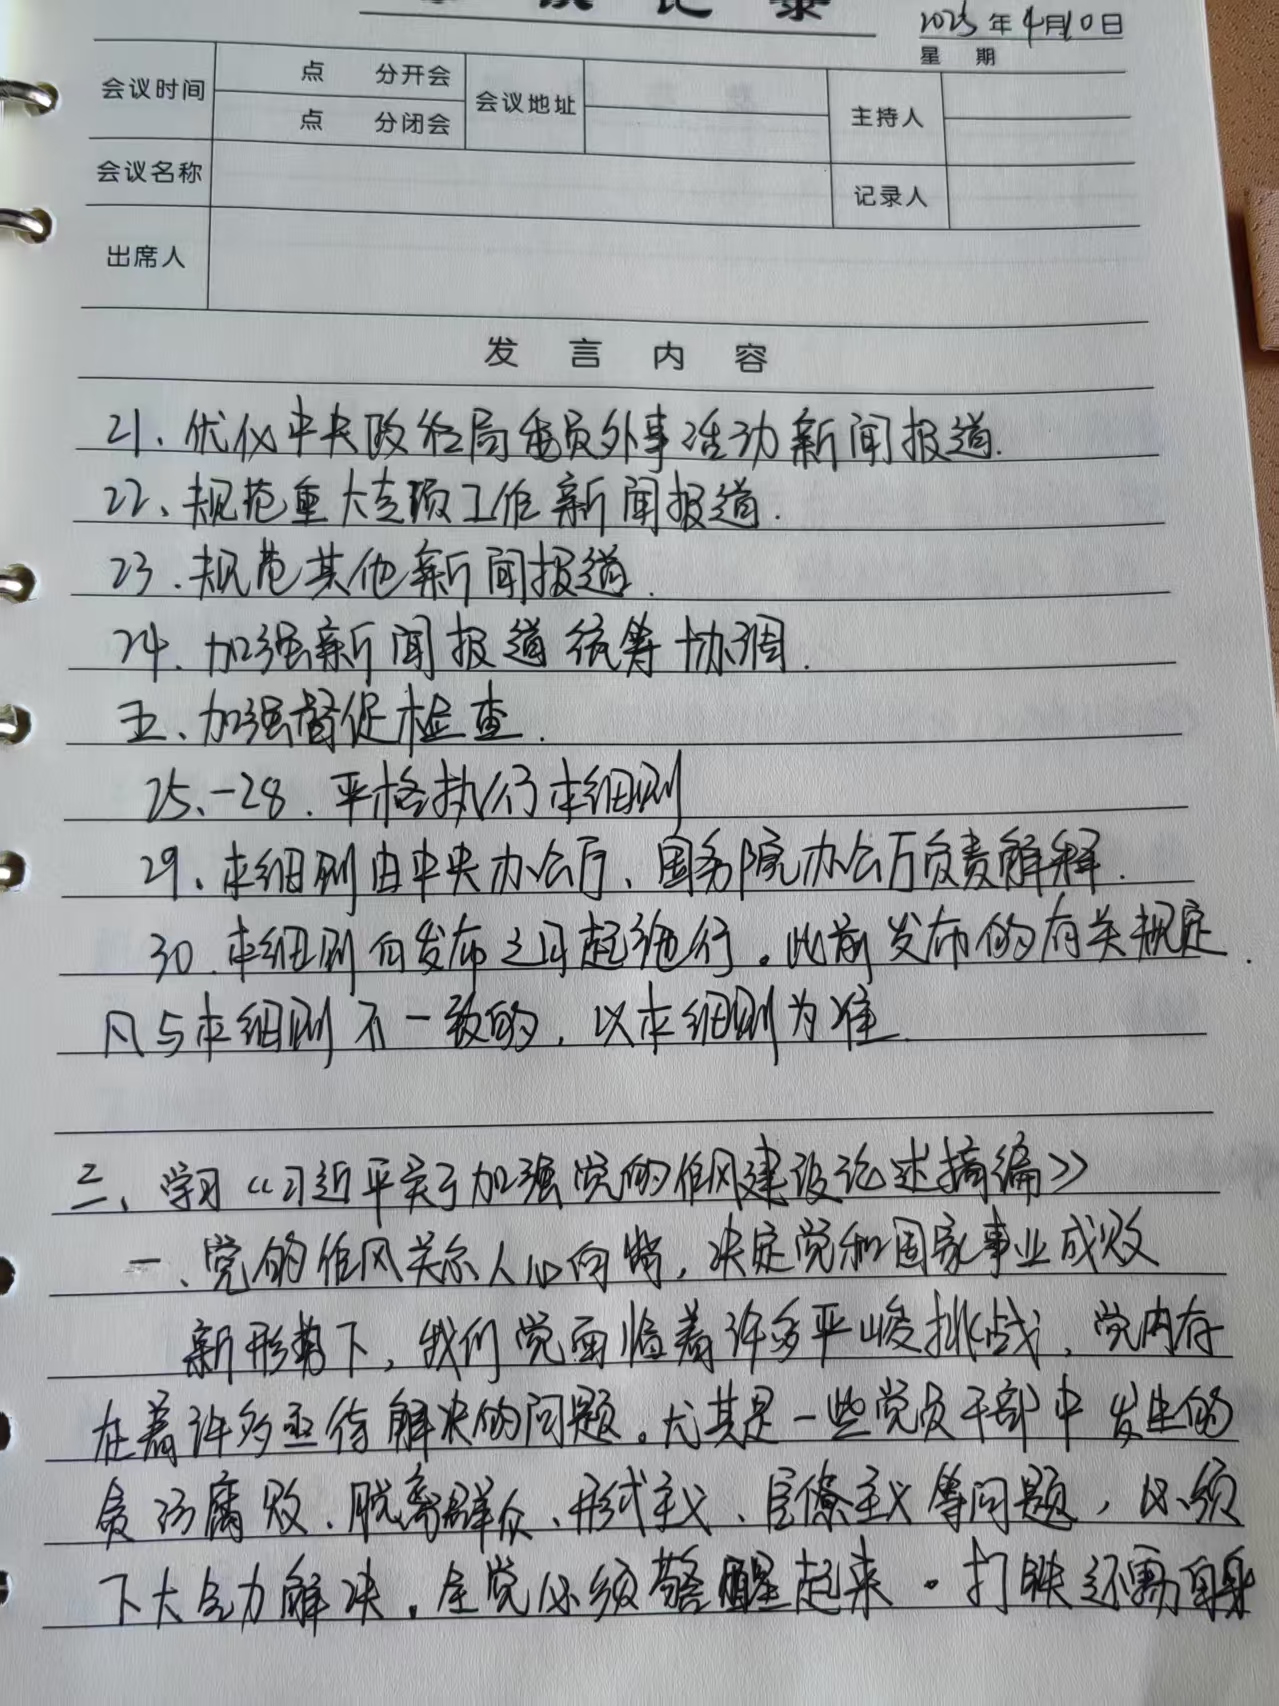 记录
2025年4月10日
星 期
会议时间 点 分开会 会议地址 主持人
点 分闭会
会议名称 记录人
出席人
发 言 内 容
21、优化中央政治局委员外事活动新闻报道.
22、规范重大专项工作新闻报道.
23.规范其他新闻报道.
24.加强新闻报道统筹协调.
五、加强督促检查.
25、-28.严格执行本细则
29、本细则由中央办公厅、国务院办公厅负责解释.
30.本细则自发布之日起施行。此前发布的有关规定.
凡与本细则不一致的,以本细则为准.
二、学习《习近平关于加强党的作风建设论述摘编》
一、党的作风关系人心向背,决定党和国家事业成败
新形势下,我们党面临着许多严峻挑战,党内存
在着许多亟待解决的问题。尤其是一些党员干部中发生的
贪污腐败、脱离群众、形式主义、官僚主义等问题,必须
下大气力解决。全党必须警醒起来。打铁还需自身